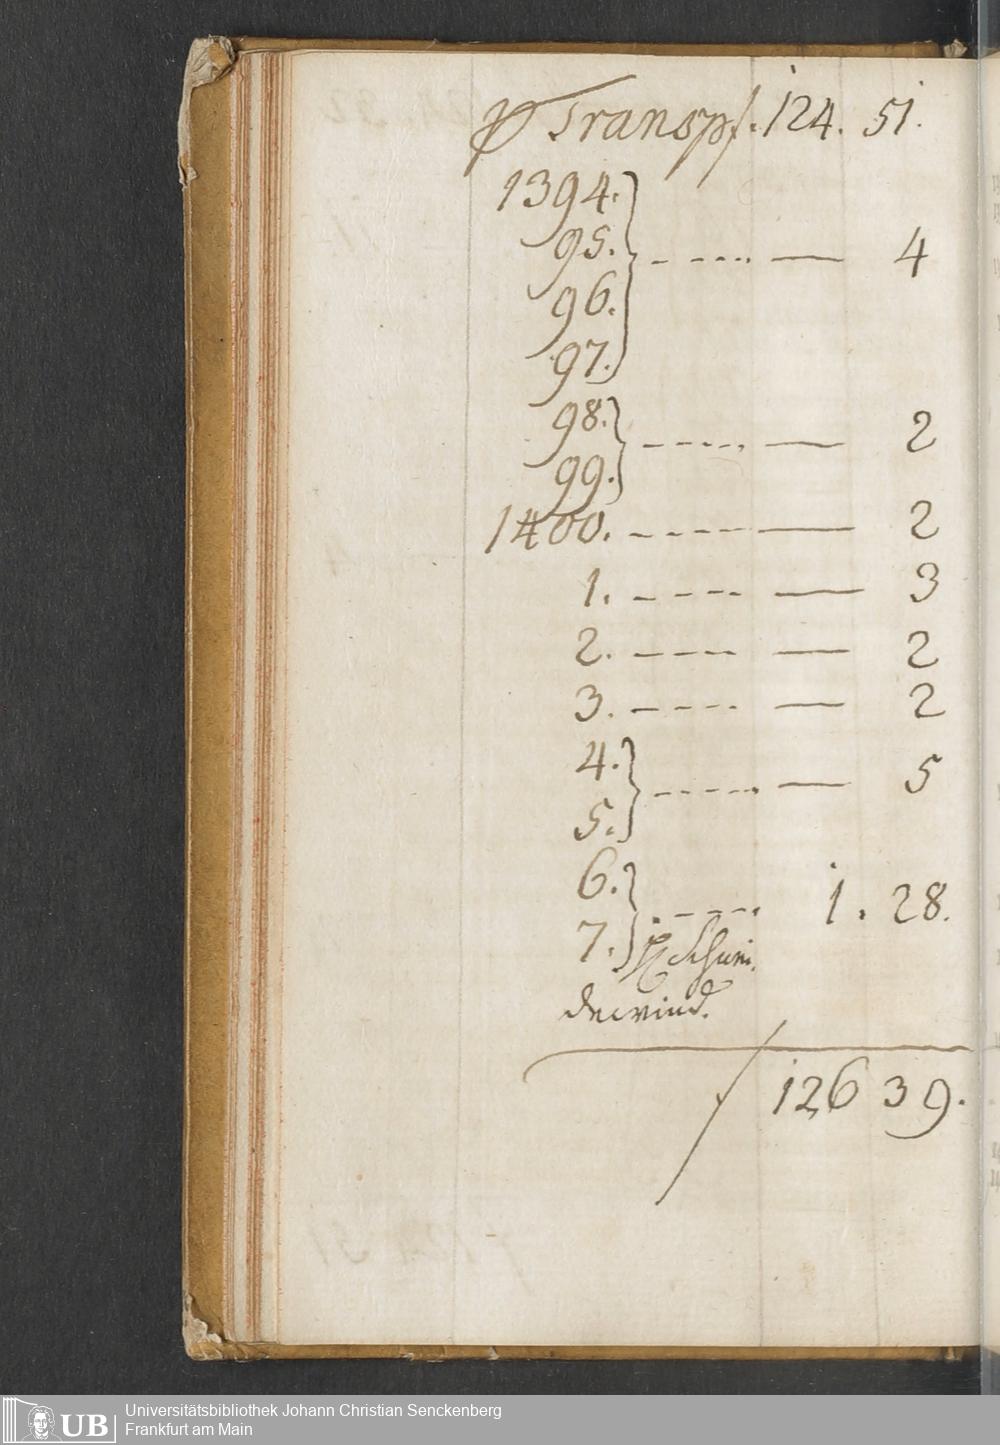 P Transp f. 124. 51.
1394.
95. – – – – — 4
96.
97.
98. – – – – — 2
99.
1400. – – – – — 2
1. – – – – — 3
2. – – – – — 2
3. – – – – — 2
4. – – – – — 5
5.
6. – – – – 1. 28.
7.
f 126 39.
UB Universitätsbibliothek Johann Christian Senckenberg
Frankfurt am Main